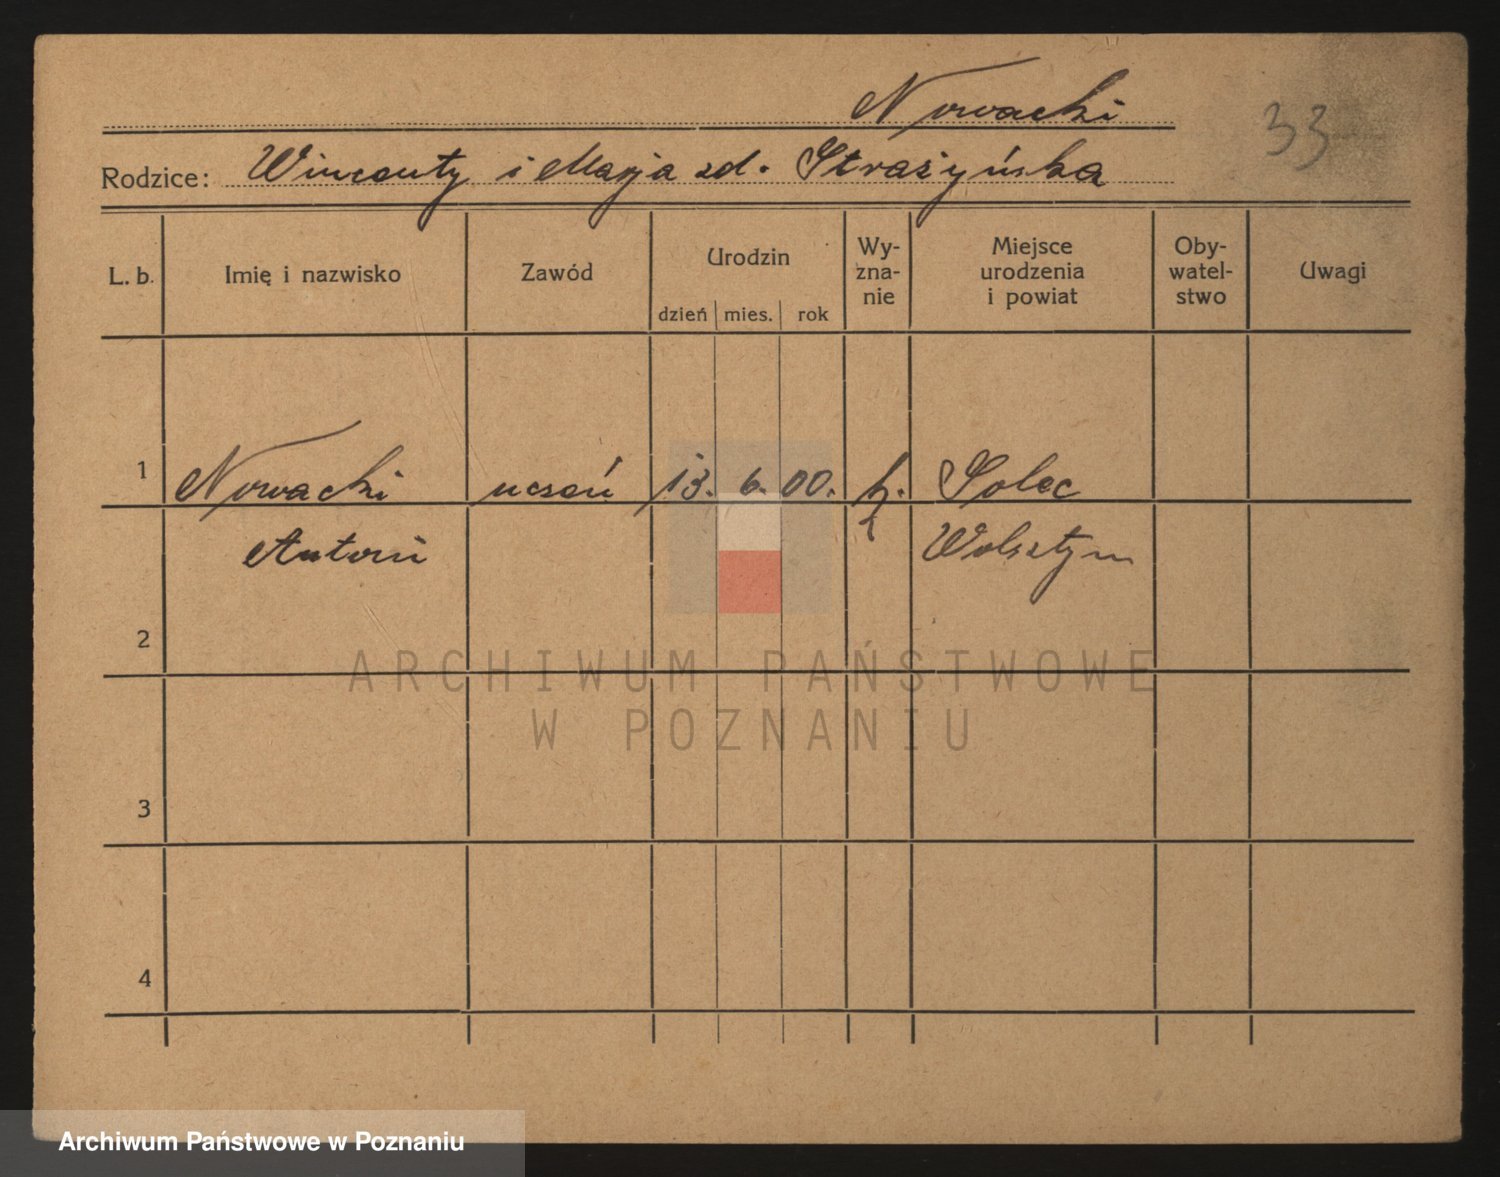 Nowacki
33
Rodzice: Wincenty i Marja zd. Strażyńska
L. b. Imię i nazwisko Zawód Urodzin dzień mies. rok Wy-zna-nie Miejsce urodzenia i powiat Oby-watel-stwo Uwagi
1 Nowacki uczeń 13. 6. 00. k. Solec
Antoni Wolsztyn
2
3
4
ARCHIWUM PAŃSTWOWE
W POZNANIU
Archiwum Państwowe w Poznaniu